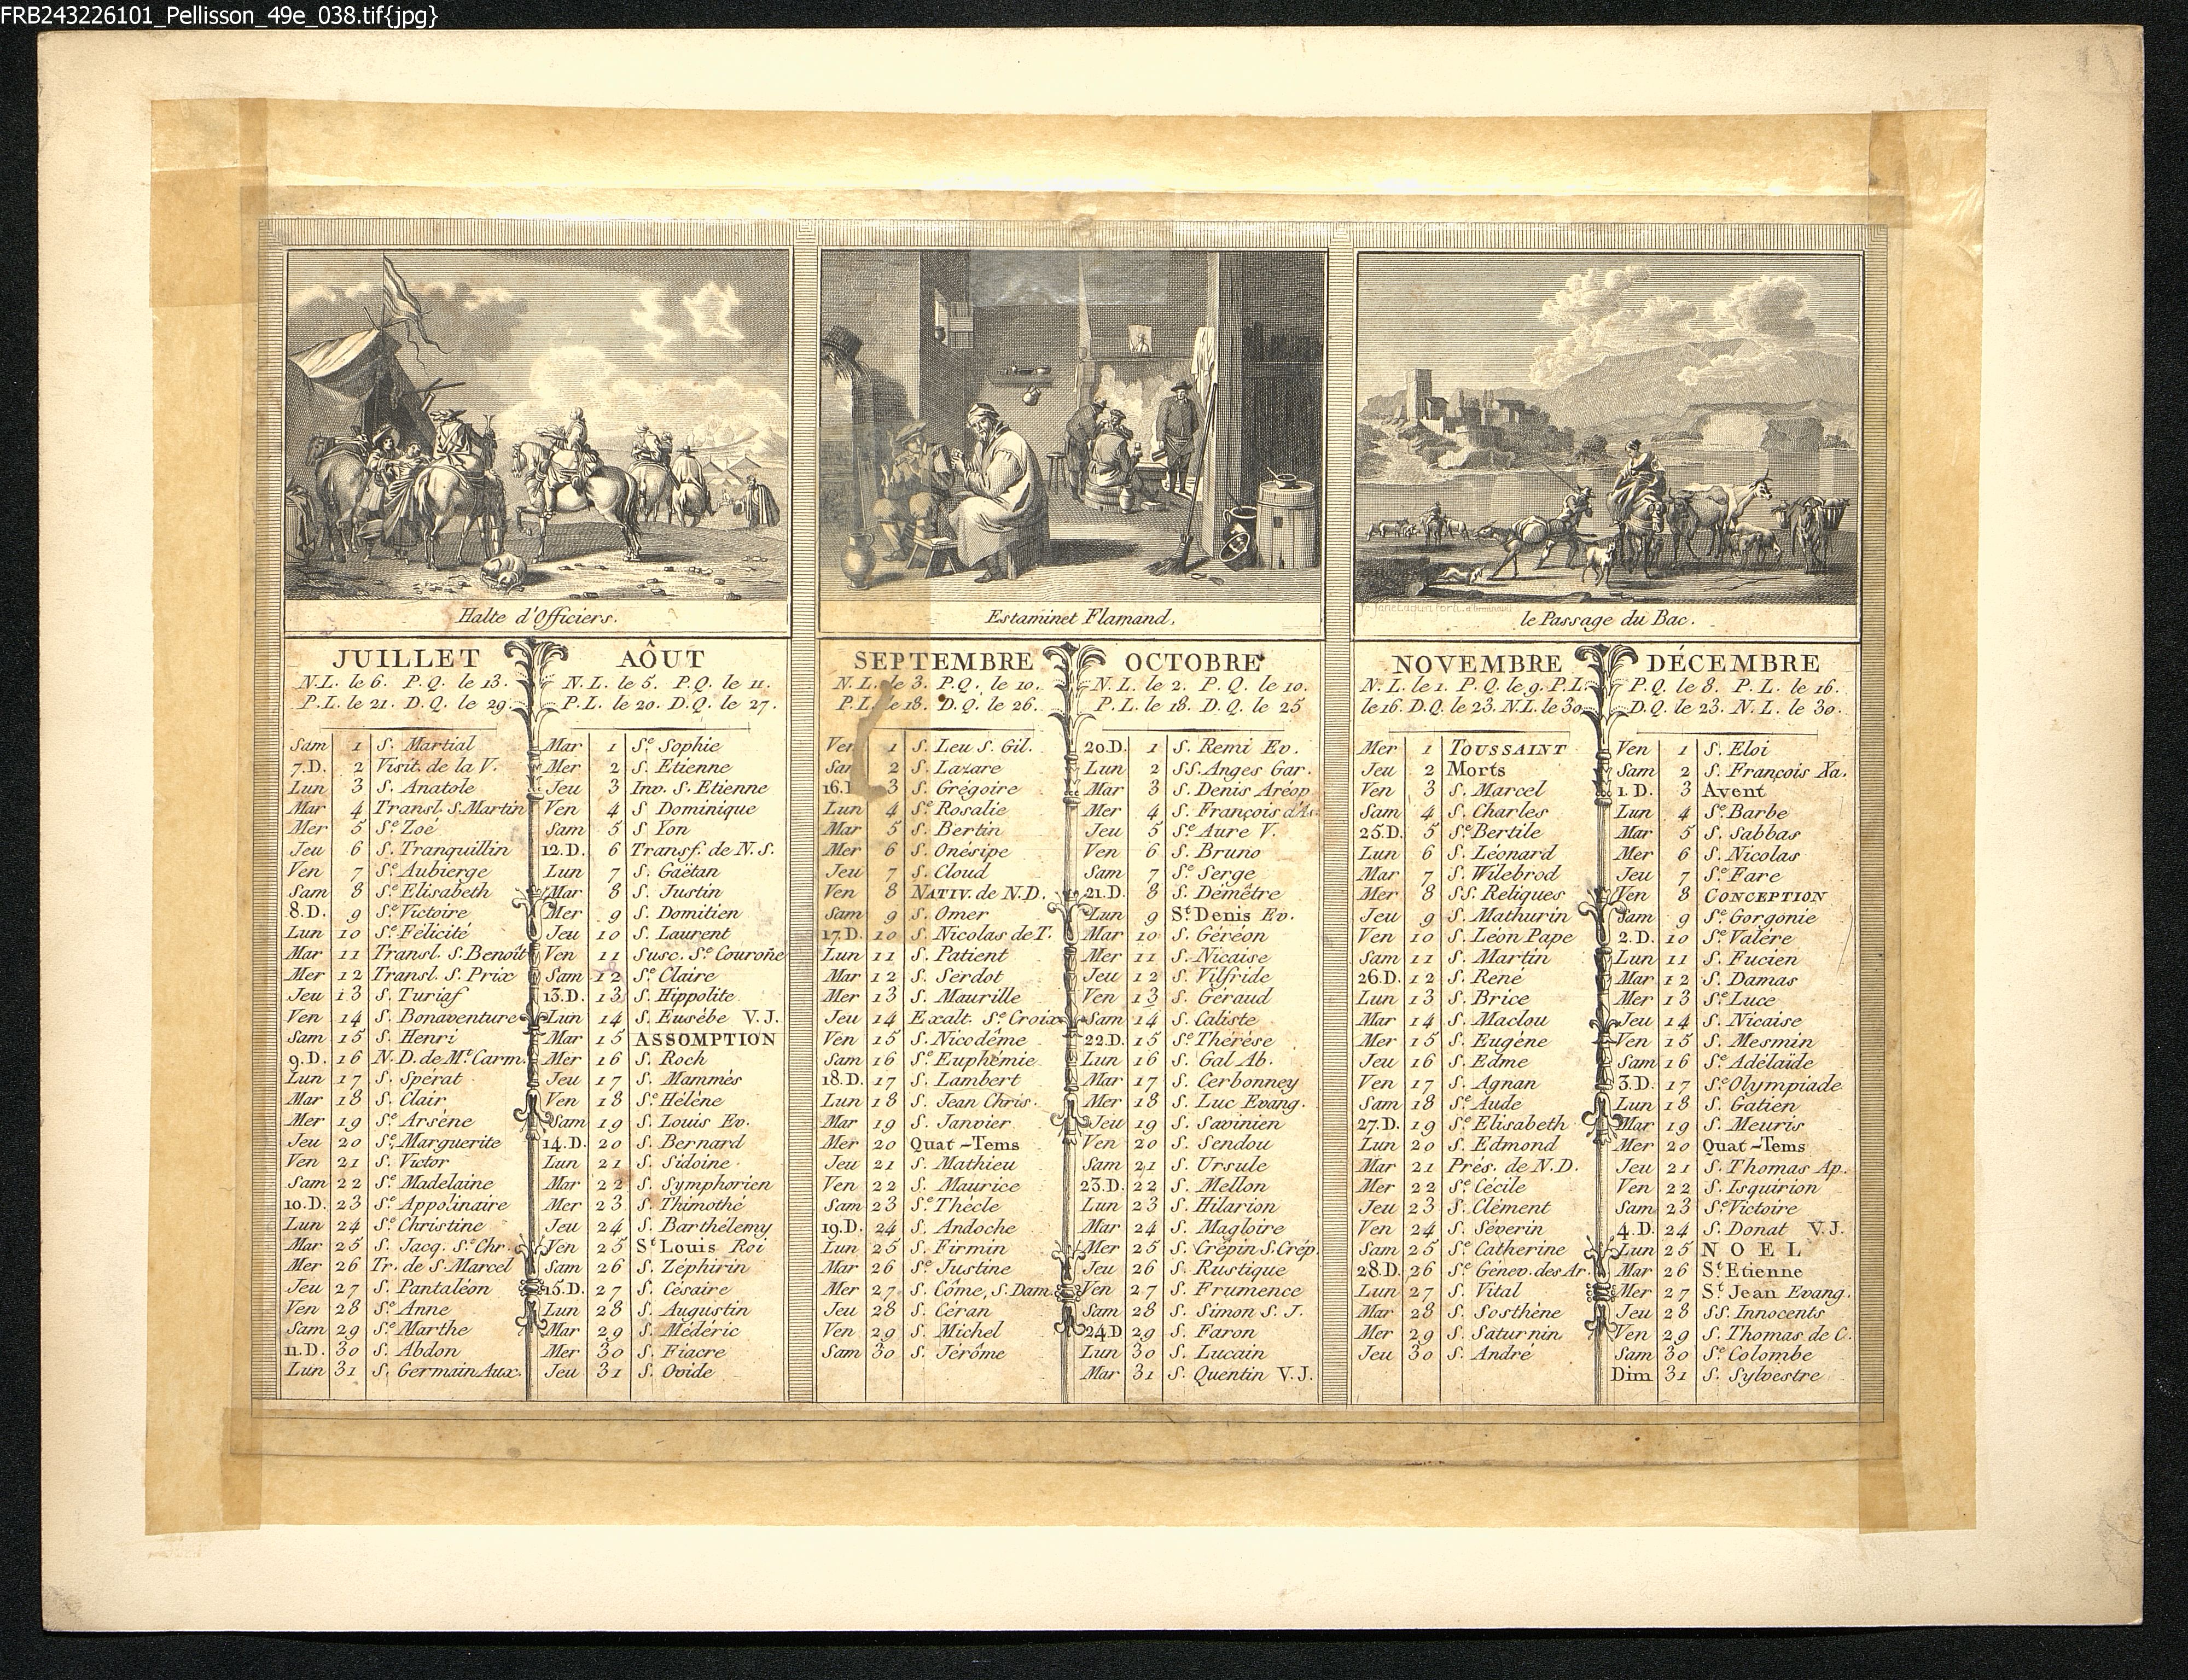 FRB243226101_Pellisson_49e_038.tif{jpg}
Halte d'Officiers.
JUILLET
N.L. le 6. P.Q. le 13.
P.L. le 21. D.Q. le 29.
Sam 1 S. Martial
7.D. 2 Visit. de la V.
Lun 3 S. Anatole
Mar 4 Transl. S. Martin
Mer 5 Se. Zoé
Jeu 6 S. Tranquillin
Ven 7 Se. Aubierge
Sam 8 Se. Elisabeth
8.D. 9 Se. Victoire
Lun 10 Se. Félicité
Mar 11 Transl. S. Benoît
Mer 12 Transl. S. Prix
Jeu 13 S. Turiaf
Ven 14 S. Bonaventure
Sam 15 S. Henri
9.D. 16 N.D. de Mt. Carm.
Lun 17 S. Spérat
Mar 18 S. Clair
Mer 19 Se. Arsène
Jeu 20 Se. Marguerite
Ven 21 S. Victor
Sam 22 Se. Madelaine
10.D. 23 Se. Appolinaire
Lun 24 Se. Christine
Mar 25 S. Jacq. Se. Chr.
Mer 26 Tr. de S. Marcel
Jeu 27 S. Pantaléon
Ven 28 Se. Anne
Sam 29 Se. Marthe
11.D. 30 S. Abdon
Lun 31 S. Germain Aux.
AÔUT
N.L. le 5. P.Q. le 11.
P.L. le 20. D.Q. le 27.
Mar 1 Se. Sophie
Mer 2 S. Etienne
Jeu 3 Inv. S. Etienne
Ven 4 S Dominique
Sam 5 S Yon
12.D. 6 Transf. de N.S.
Lun 7 S. Gaëtan
Mar 8 S. Justin
Mer 9 S. Domitien
Jeu 10 S. Laurent
Ven 11 Susc. Se. Couroñe
Sam 12 Se. Claire
13.D. 13 S. Hippolite
Lun 14 S. Eusébe V.J.
Mar 15 ASSOMPTION
Mer 16 S. Roch
Jeu 17 S. Mammés
Ven 18 Se. Hélène
Sam 19 S. Louis Ev.
14.D. 20 S. Bernard
Lun 21 S. Sidoine
Mar 22 S. Symphorien
Mer 23 S. Thimothé
Jeu 24 S. Barthélemy
Ven 25 St. Louis Roi
Sam 26 S. Zéphirin
15.D. 27 S. Césaire
Lun 28 S. Augustin
Mar 29 S. Médéric
Mer 30 S. Fiacre
Jeu 31 S. Ovide
Estaminet Flamand.
SEPTEMBRE
N.L. le 3. P.Q. le 10.
P.L. le 18. D.Q. le 26.
Ven 1 S. Leu S. Gil.
Sam 2 S. Lazare
16.D 3 S. Grégoire
Lun 4 Se. Rosalie
Mar 5 S. Bertin
Mer 6 S. Onésipe
Jeu 7 S. Cloud
Ven 8 NATIV. de N.D.
Sam 9 S. Omer
17.D. 10 S. Nicolas de T.
Lun 11 S. Patient
Mar 12 S. Serdot
Mer 13 S. Maurille
Jeu 14 Exalt. Se. Croix
Ven 15 S. Nicodême
Sam 16 Se. Euphémie
18.D. 17 S. Lambert
Lun 18 S. Jean Chris.
Mar 19 S. Janvier
Mer 20 Quat-Tems
Jeu 21 S. Mathieu
Ven 22 S. Maurice
Sam 23 Se. Thécle
19.D. 24 S. Andoche
Lun 25 S. Firmin
Mar 26 Se. Justine
Mer 27 S. Côme, S. Dam.
Jeu 28 S. Céran
Ven 29 S. Michel
Sam 30 S. Jérôme
OCTOBRE
N.L. le 2. P.Q. le 10.
P.L. le 18. D.Q. le 25
20.D. 1 S. Remi Ev.
Lun 2 SS. Anges Gar.
Mar 3 S. Denis Aréop
Mer 4 S. François d'As
Jeu 5 Se. Aure V.
Ven 6 S. Bruno
Sam 7 Se. Serge
21.D. 8 S. Démêtre
Lun 9 St. Denis Ev.
Mar 10 S. Géréon
Mer 11 S. Nicaise
Jeu 12 S. Vilfride
Ven 13 S. Géraud
Sam 14 S. Caliste
22.D. 15 Se. Thérèse
Lun 16 S. Gal Ab.
Mar 17 S. Cerbonney
Mer 18 S. Luc Evang.
Jeu 19 S. Savinien
Ven 20 S. Sendou
Sam 21 S. Ursule
23.D. 22 S. Mellon
Lun 23 S. Hilarion
Mar 24 S. Magloire
Mer 25 S. Crépin S. Crép.
Jeu 26 S. Rustique
Ven 27 S. Frumence
Sam 28 S. Simon S. J.
24D 29 S. Faron
Lun 30 S. Lucain
Mar 31 S. Quentin V.J.
le Passage du Bac.
NOVEMBRE
N.L. le 1. P.Q. le 9. P.L.
le 16. D.Q. le 23. N.L. le 30.
Mer 1 TOUSSAINT
Jeu 2 Morts
Ven 3 S. Marcel
Sam 4 S. Charles
25.D. 5 Se. Bertile
Lun 6 S. Léonard
Mar 7 S. Wilebrod
Mer 8 SS. Reliques
Jeu 9 S. Mathurin
Ven 10 S. Léon Pape
Sam 11 S. Martin
26.D. 12 S. René
Lun 13 S. Brice
Mar 14 S. Maclou
Mer 15 S. Eugène
Jeu 16 S. Edme
Ven 17 S. Agnan
Sam 18 Se. Aude
27.D. 19 Se. Elisabeth
Lun 20 S. Edmond
Mar 21 Prés. de N.D.
Mer 22 Se. Cécile
Jeu 23 S. Clément
Ven 24 S. Séverin
Sam 25 Se. Catherine
28.D. 26 Se. Génev. des Ar.
Lun 27 S. Vital
Mar 28 S. Sosthène
Mer 29 S. Saturnin
Jeu 30 S. André
DÉCEMBRE
P.Q. le 8. P.L. le 16.
D.Q. le 23. N.L. le 30.
Ven 1 S. Eloi
Sam 2 S. François Xa.
1.D. 3 Avent
Lun 4 Se. Barbe
Mar 5 S. Sabbas
Mer 6 S. Nicolas
Jeu 7 Se. Fare
Ven 8 CONCEPTION
Sam 9 Se. Gorgonie
2.D. 10 Se. Valére
Lun 11 S. Fucien
Mar 12 S. Damas
Mer 13 Se. Luce
Jeu 14 S. Nicaise
Ven 15 S. Mesmin
Sam 16 Se. Adélaïde
3.D. 17 Se. Olympiade
Lun 18 S. Gatien
Mar 19 S. Meuris
Mer 20 Quat-Tems
Jeu 21 S. Thomas Ap.
Ven 22 S. Isquirion
Sam 23 Se. Victoire
4.D. 24 S. Donat V.J.
Lun 25 NOEL
Mar 26 St. Etienne
Mer 27 St. Jean Evang.
Jeu 28 SS. Innocents
Ven 29 S. Thomas de C.
Sam 30 Se. Colombe
Dim 31 S. Sylvestre